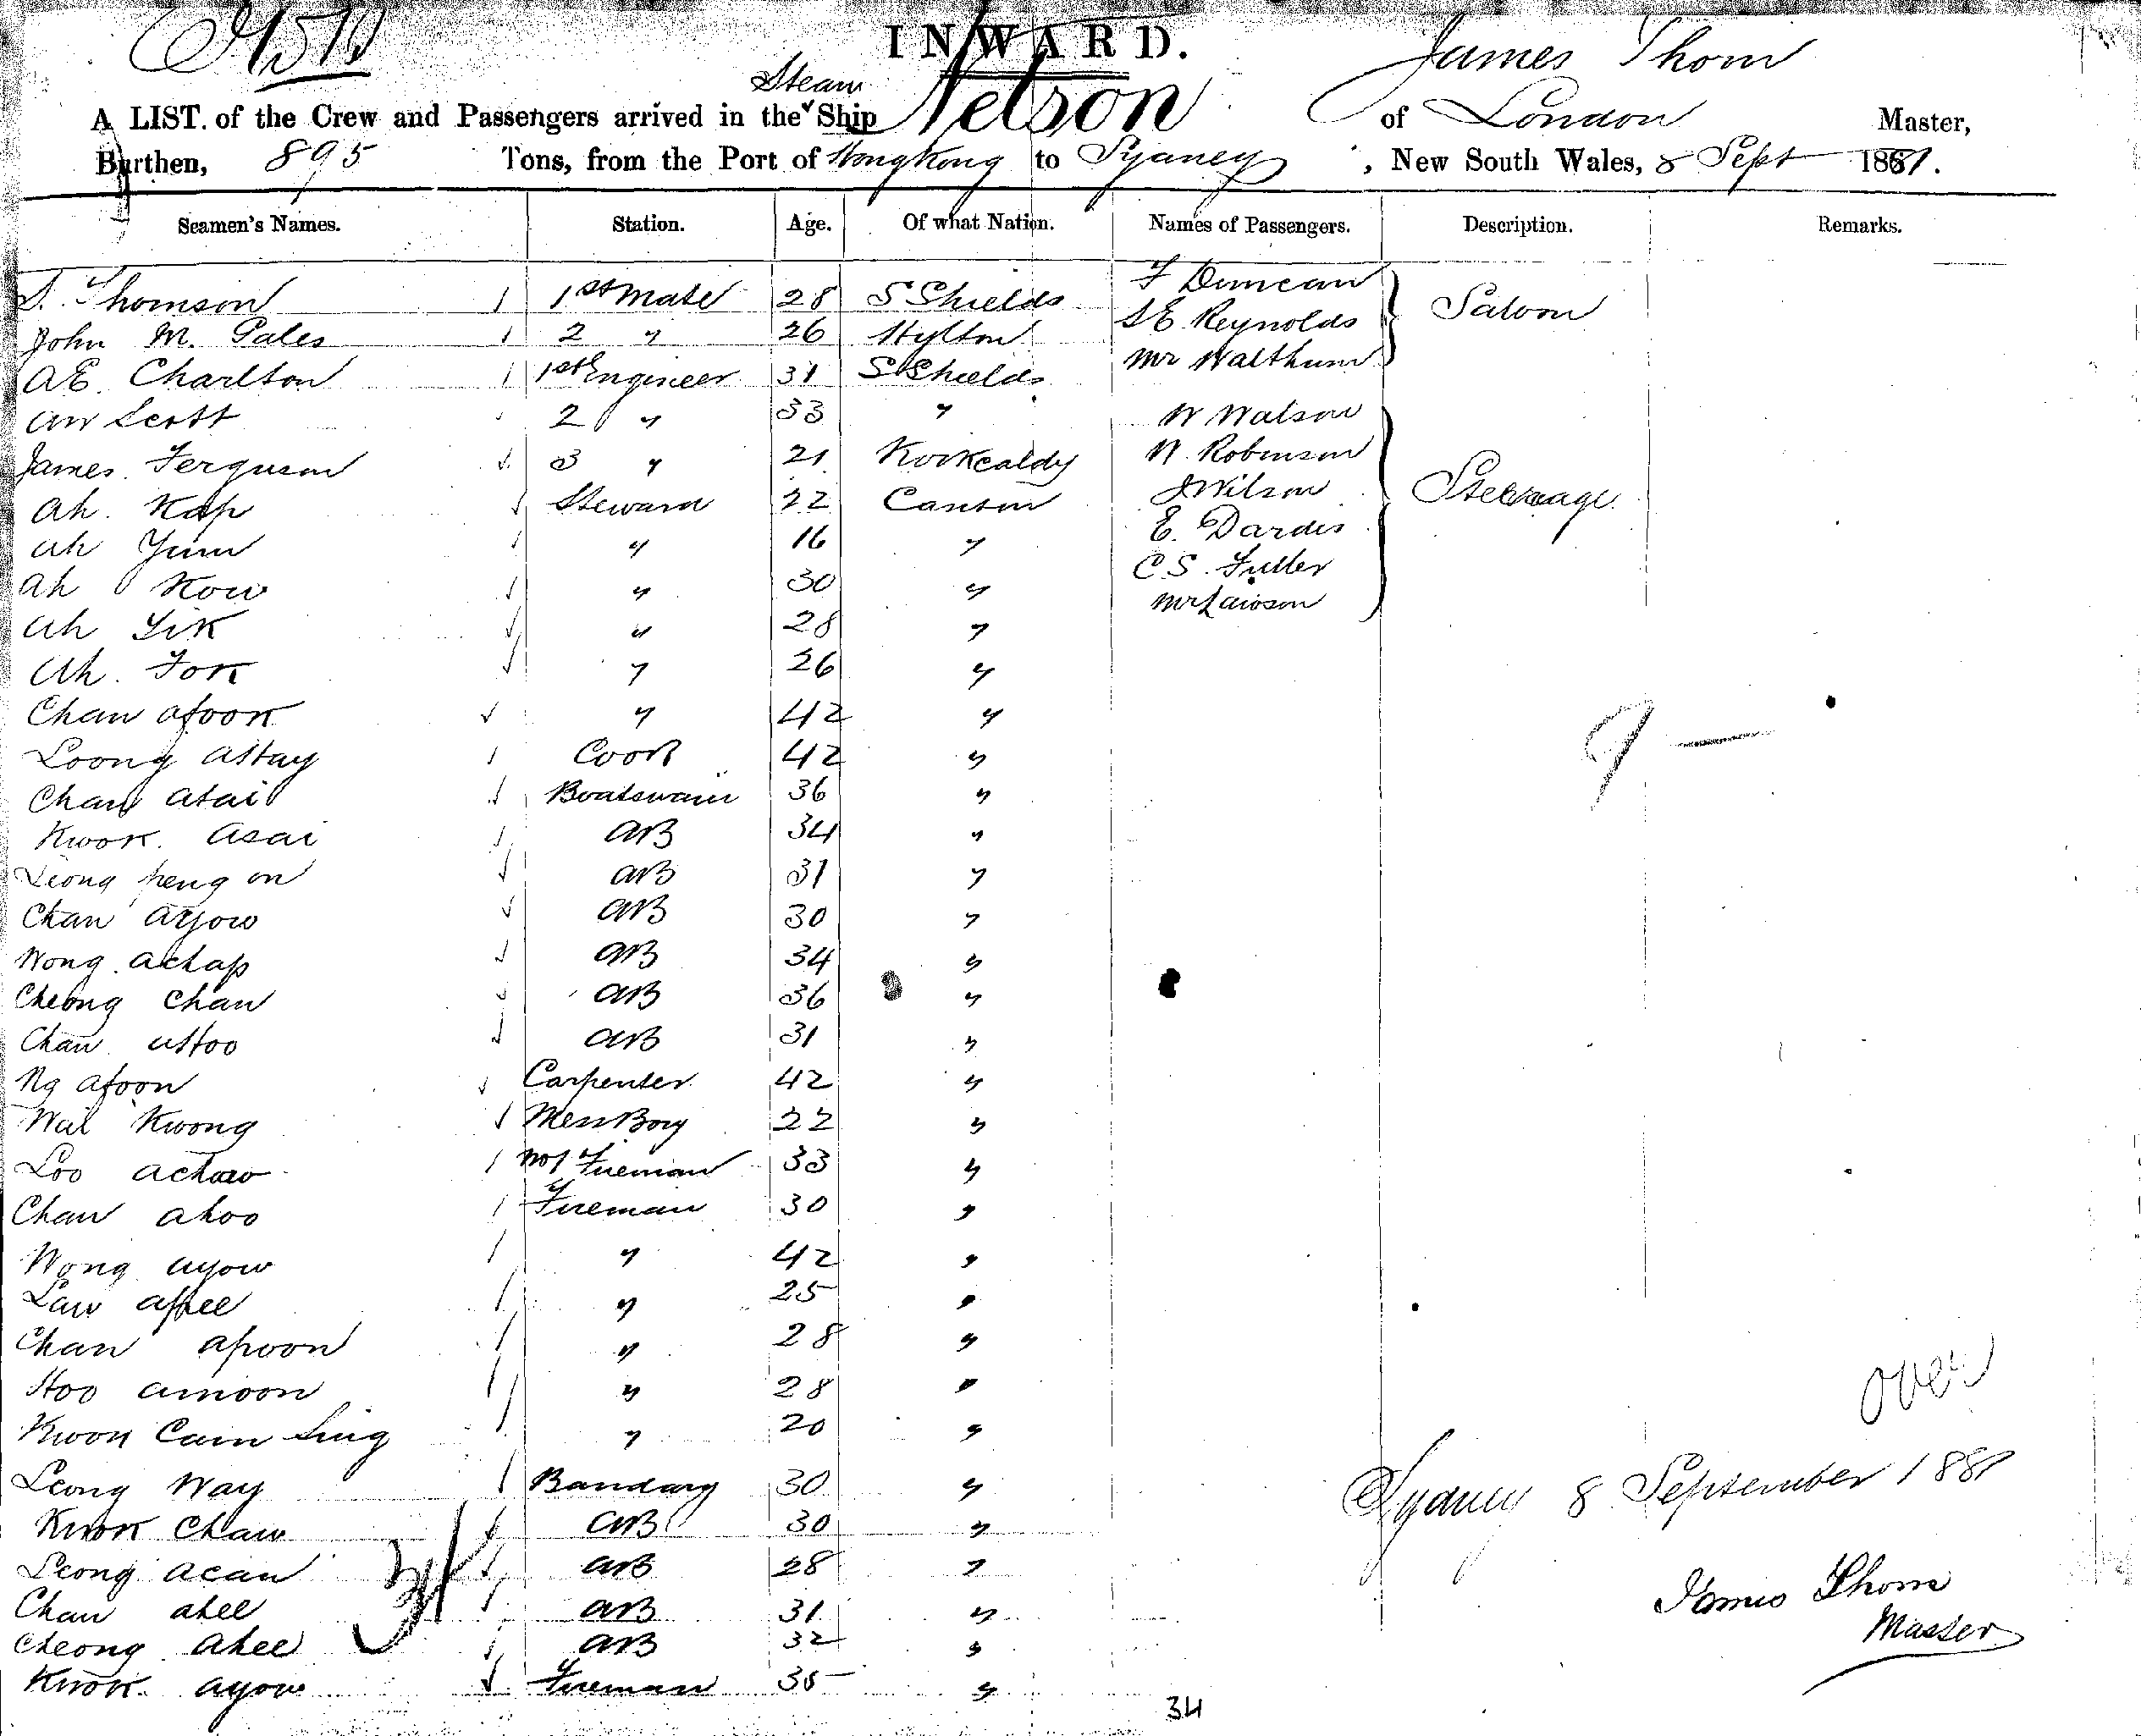 INWARD.
James Thom
A LIST of the Crew and Passengers arrived in the Steam Ship Nelson of London Master,
Burthen, 895 Tons, from the Port of Hong Kong to Sydney, New South Wales, 8 Sept 1881.
Seamen's Names. Station. Age. Of what Nation. Names of Passengers. Description. Remarks.
S. Thomson 1st Mate 28 S Shields F Duncan Saloon
John M. Pales 2 " 26 Hylton S E Reynolds
A E. Charlton 1st Engineer 31 S Shields Mr Walthum
A W Scott 2 " 33 " W Watson Steerage
James Ferguson 3 " 21 Kirkcaldy W. Robinson
Ah. Kap Steward 22 Canton J Wilson
Ah Yum " 16 " E. Dardis
Ah Kow " 30 " C. S. Fuller
Ah Yik " 28 " Mr Lawson
Ah. Fok " 26 "
Chan afook " 42 " 9 —
Loong attay Cook 42 "
Chan atai Boatswain 36 "
Kwok. asai AB 34 "
Leong peng on AB 31 "
Chan ayow AB 30 "
Wong achap AB 34 "
Cheong Chan AB 36 "
Chan attoo AB 31 "
Ng afoon Carpenter 42 "
Wai Kwong Mess Boy 22 "
Loo achow No 1 Fireman 33 "
Chan ahoo Fireman 30 "
Wong ayow " 42 "
Law affee " 25 "
Chan apoon " 28 "
Hoo amoon " 28 " over
Kwon Cam Sing " 20 "
Leong Way Bandary 30 " Sydney 8 September 1881
Kwok Chaw AB 30 "
Leong acan AB 28 " James Thom
Chan ahee AB 31 " Master
Cheong ahee AB 32 "
Kwok ayow Fireman 35 "
34